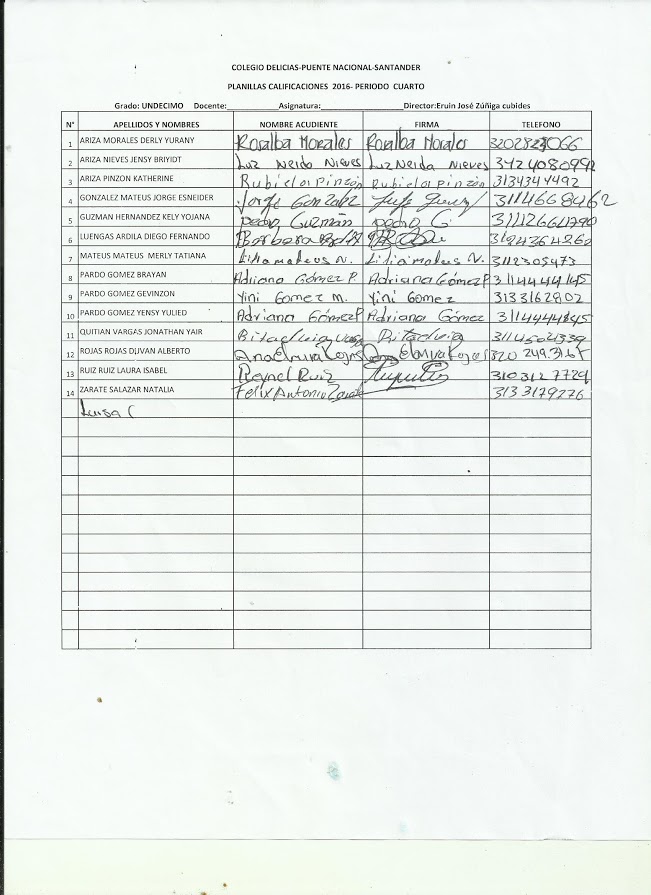 COLEGIO DELICIAS-PUENTE NACIONAL-SANTANDER
PLANILLAS CALIFICACIONES 2016- PERIODO CUARTO
Grado: UNDECIMO Docente:____________ Asignatura:____________________Director:Eruin José Zúñiga cubides
N° APELLIDOS Y NOMBRES NOMBRE ACUDIENTE FIRMA TELEFONO
1 ARIZA MORALES DERLY YURANY Rosalba Morales Rosalba Morales
2 ARIZA NIEVES JENSY BRIYIDT Luz Neida Nieves Luz Neida Nieves 3124080992
3 ARIZA PINZON KATHERINE Rubiela pinzón Rubiela pinzón 3134344492
4 GONZALEZ MATEUS JORGE ESNEIDER Jorge Gonzalez 3114668462
5 GUZMAN HERNANDEZ KELY YOJANA pedro Guzmán pedro G.
6 LUENGAS ARDILA DIEGO FERNANDO Barbara
7 MATEUS MATEUS MERLY TATIANA Lilia mateus N. Lilia mateus N. 3112305473
8 PARDO GOMEZ BRAYAN Adriana Gómez P. Adriana Gómez P
9 PARDO GOMEZ GEVINZON Yini Gomez M. Yini Gomez 3133162802
10 PARDO GOMEZ YENSY YULIED Adriana Gómez P Adriana Gómez
11 QUITIAN VARGAS JONATHAN YAIR
12 ROJAS ROJAS DUVAN ALBERTO
13 RUIZ RUIZ LAURA ISABEL Reynel Ruiz 3103127729
14 ZARATE SALAZAR NATALIA Felix Antonio Zarate 3133179276
Luisa (